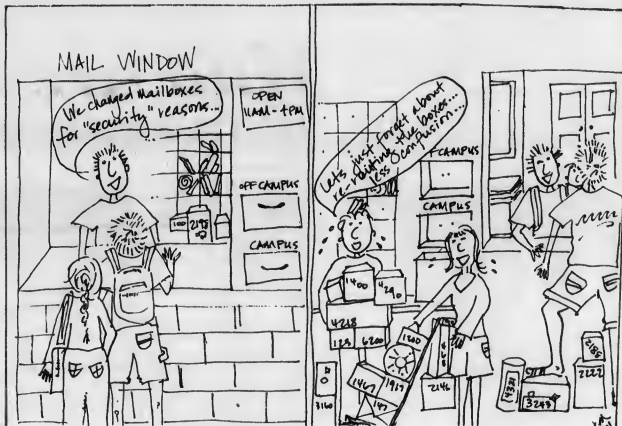 MAIL WINDOW
We changed mailboxes
for "security" reasons...
OPEN
11AM - 4PM
OFF CAMPUS
CAMPUS
100
2198
Let's just forget about
re-uniting the boxes...
less confusion...
F CAMPUS
CAMPUS
1400
4290
4218
123
6200
1200
1467
1917
147
668
2146
3160
4321
3243
2185
2222